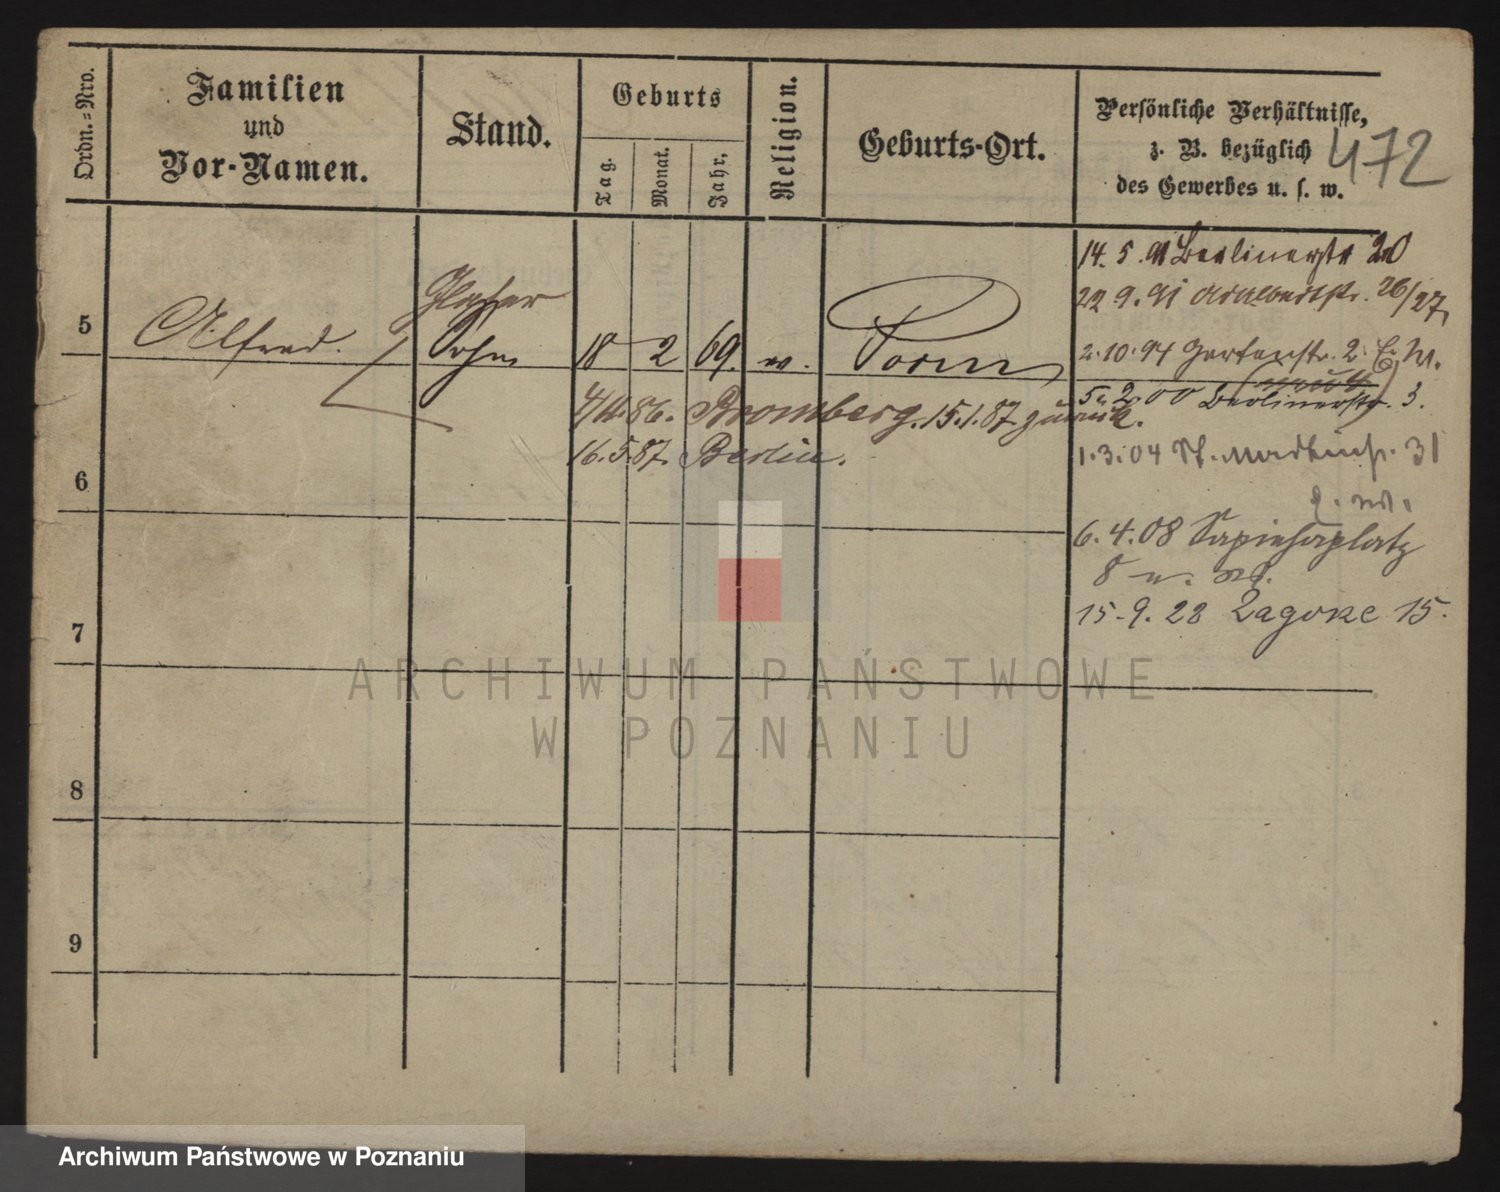 Ordn.-Nro.
Familien
und
Vor-Namen.
Stand.
Geburts
Tag.
Monat.
Jahr.
Religion.
Geburts-Ort.
Persönliche Verhältnisse,
z. B. bezüglich
des Gewerbes u. s. w.
472
5
Alfred.
Sohn
18 2 69.
Posen
14. 5. 91 Berlinerstr 20
22 9. 91 Adalbertstr. 26/27
2. 10. 94 Gartenstr. 2.
5. 2. 00 Berlinerstr. 3.
86. Bromberg. 15. 1. 87 zurück.
16. 5. 87. Berlin.
1. 3. 04 St. Martinstr. 31
6
6. 4. 08 Sapiehaplatz
8
15. 9. 28 Zagorze 15.
7
8
9
ARCHIWUM PAŃSTWOWE
W POZNANIU
Archiwum Państwowe w Poznaniu